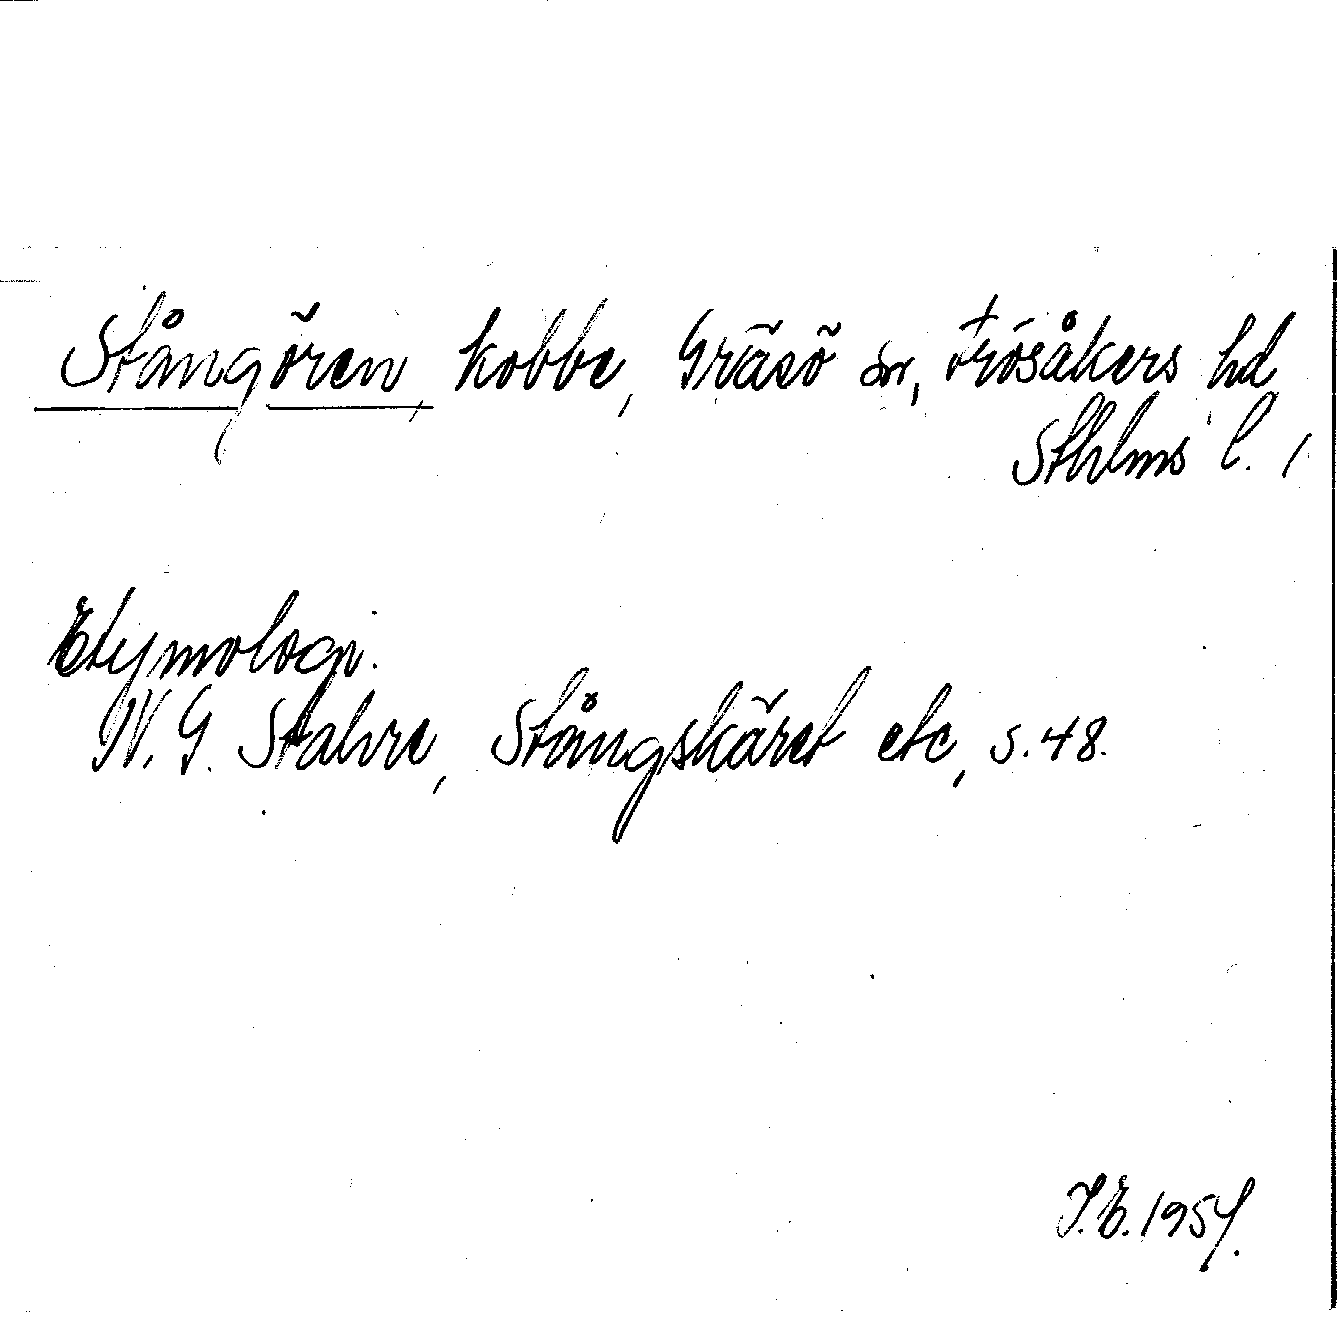 Stångören, kobbe, Gräsö sn, Frösåkers hd
Sthlms l.
Etymologi.
N. G. Stahre, Stångskäret etc, s. 48.
I. E. 1957.